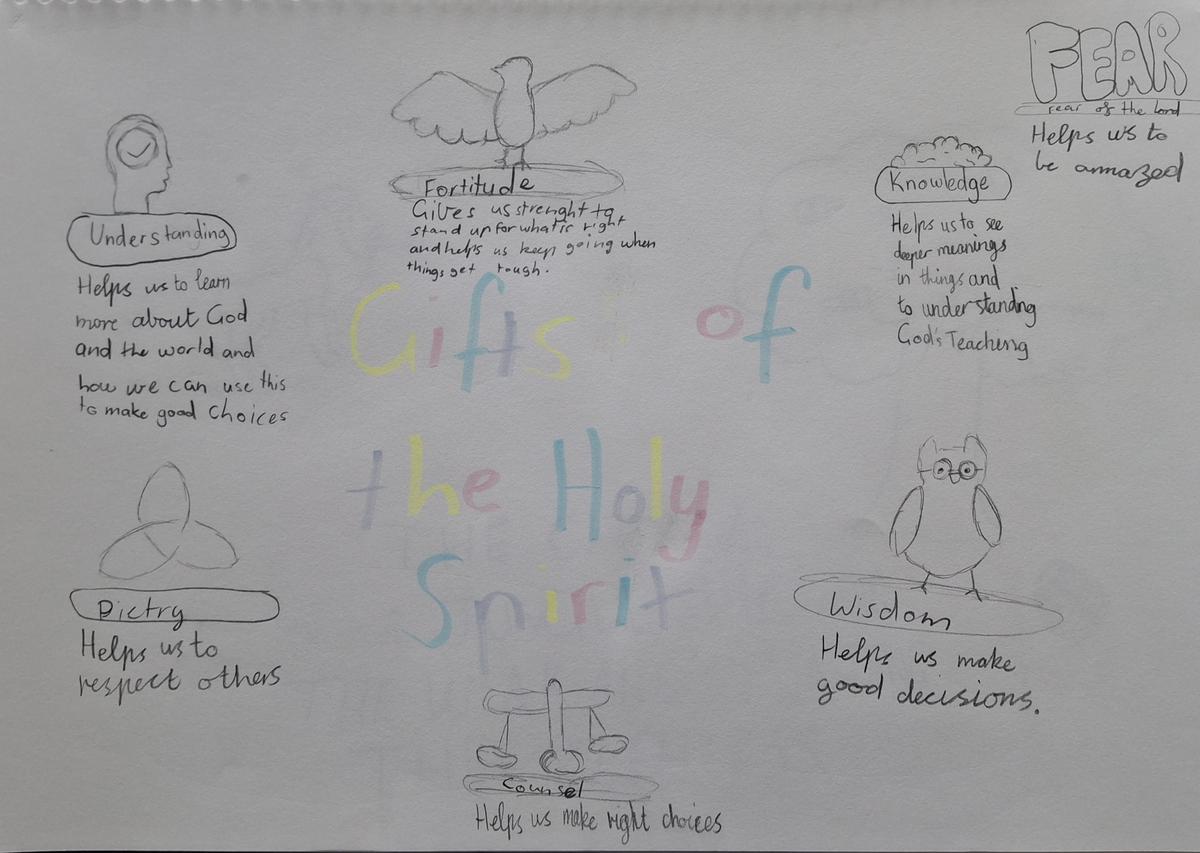 FEAR
fear of the Lord
Helps us to
be ammazed
Fortitude
Gives us strenght to
stand up for what is right
and helps us keep going when
things get tough.
Knowledge
Helps us to see
deeper meanings
in things and
to understanding
God's Teaching
Understanding
Helps us to learn
more about God
and the world and
how we can use this
to make good choices
Gifts of
the Holy
Spirit
Pietry
Helps us to
respect others
Wisdom
Helps us make
good decisions.
Counsel
Helps us make right choices